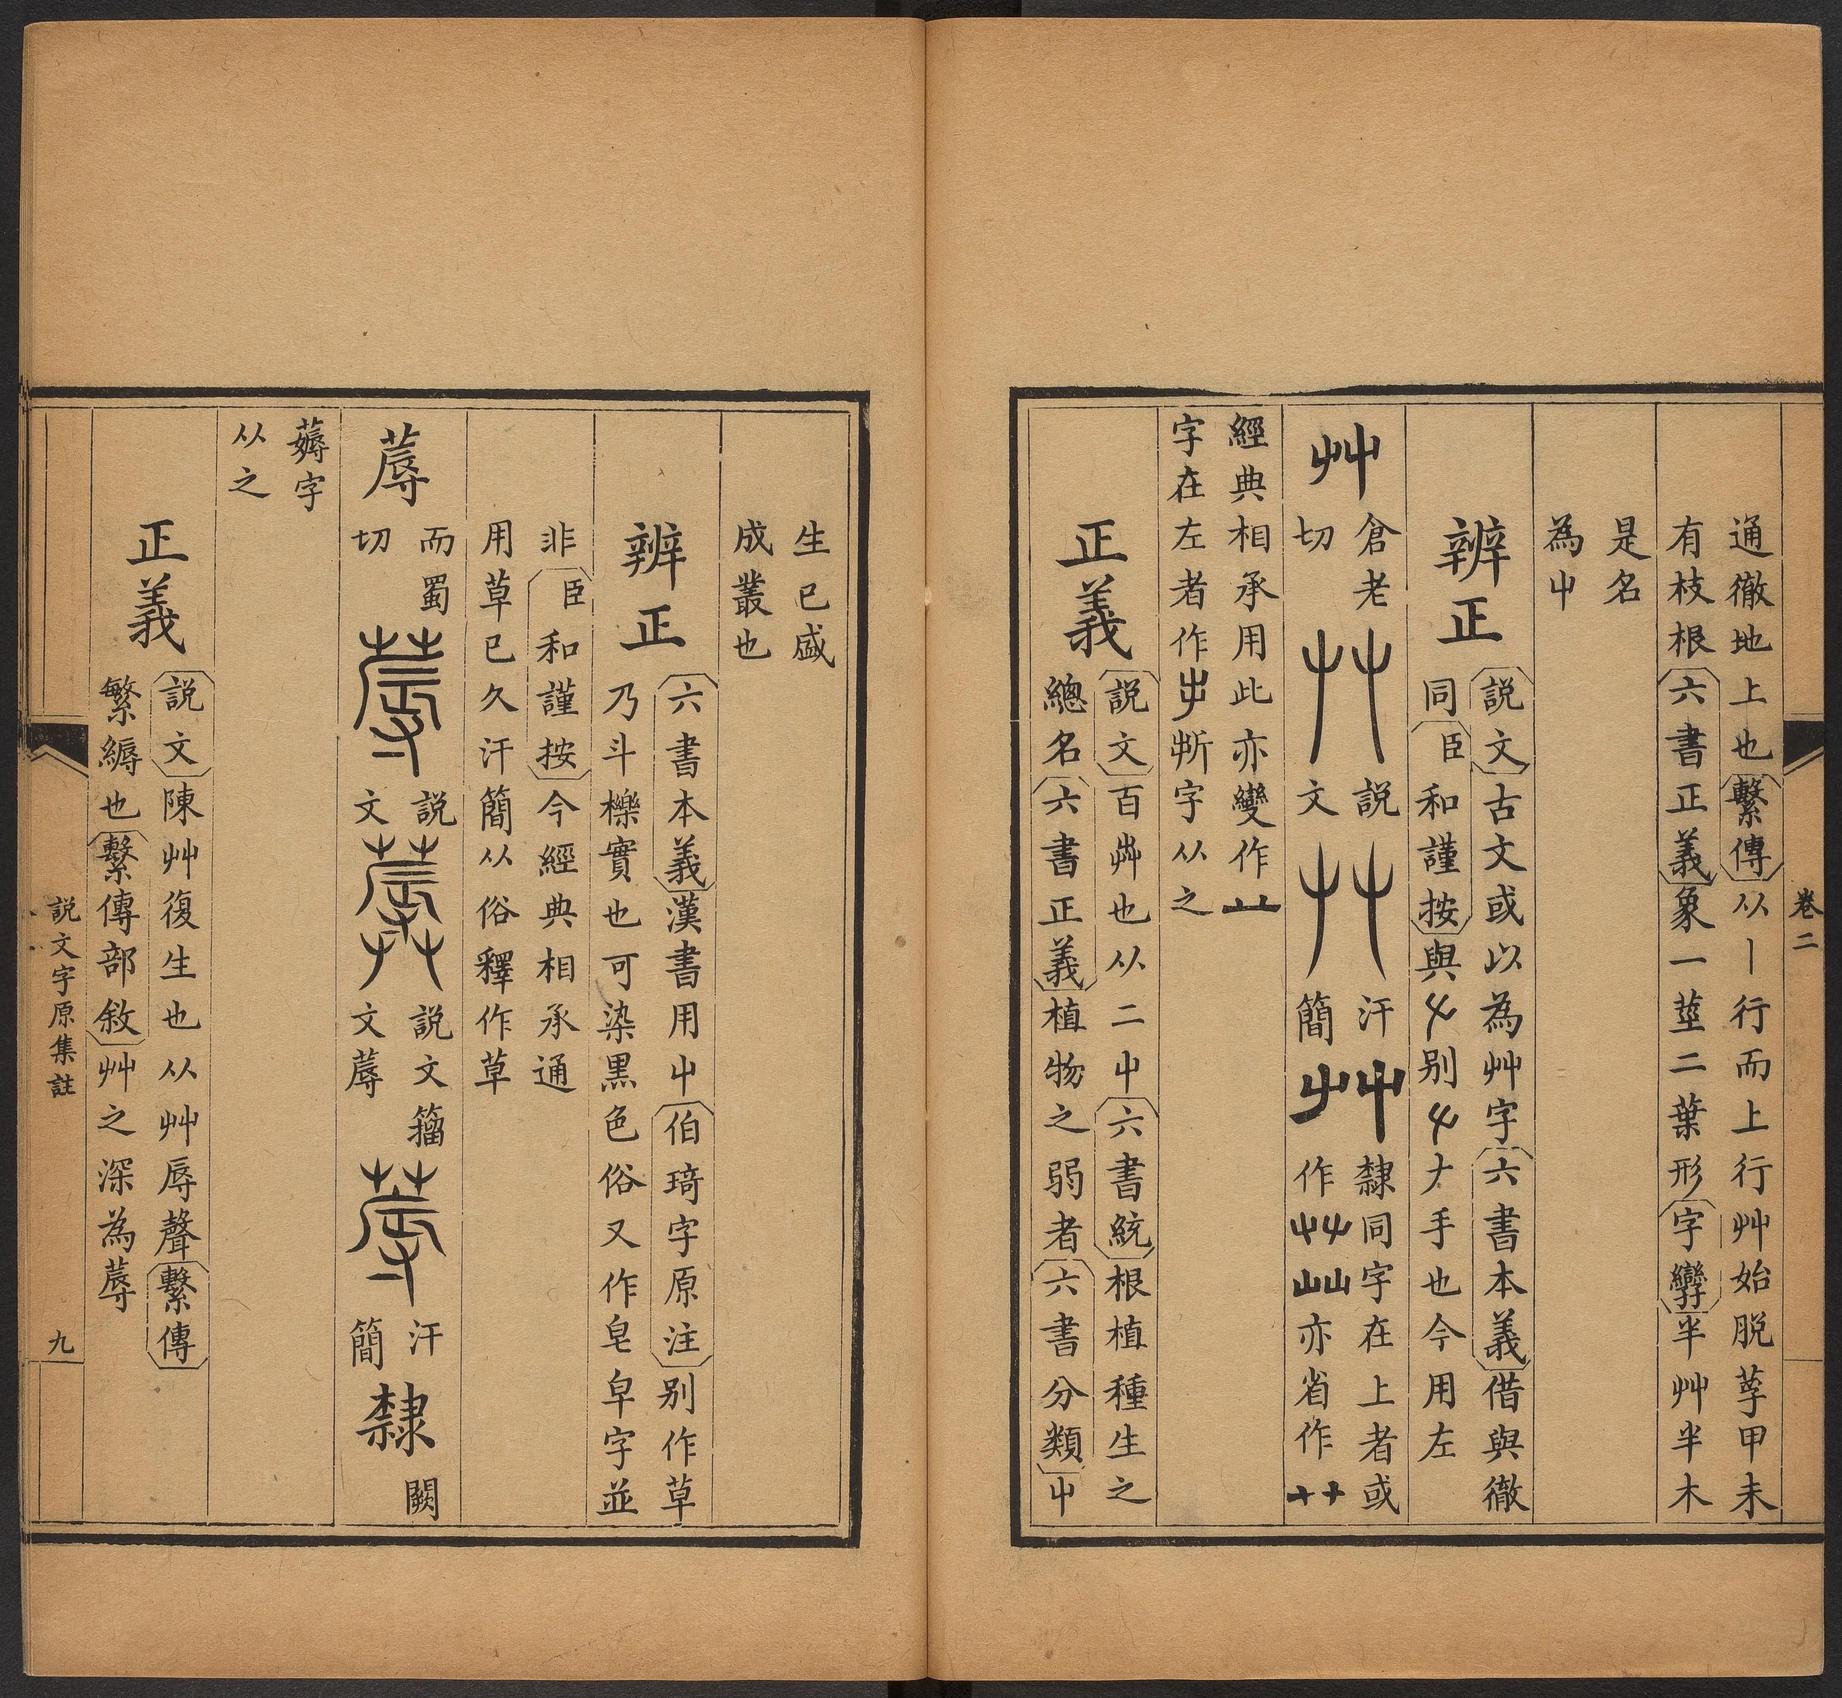 卷二
通徹地上也繫傳从丨行而上行艸始脱莩甲未
有枝根六書正義象一莖二葉形字孿半艸半木
是名
為屮
辨正
説文古文或以為艸字六書本義借與徹
同臣和謹按與屮别屮𠂇手也今用左
艸
倉老
切
艸
説
文
艸
汗
簡
艸
隸同字在上者或
作艸䒑亦省作艹
經典相承用此亦變作䒑
字在左者作㞢㪿字从之
正義
説文百芔也从二屮六書統根植種生之
總名六書正義植物之弱者六書分類屮
生已盛
成叢也
辨正
六書本義漢書用屮伯琦字原注别作草
乃斗櫟實也可染黒色俗又作皂皁字並
非臣和謹按今經典相承通
用草已久汗簡从俗釋作草
蓐
而蜀
切
蓐
説
文
蓐
説文籀
文蓐
蓐
汗
簡
隸
闕
薅字
从之
正義
説文陳艸復生也从艸辱聲繫傳
繁縟也繫傳部敘艸之深為蓐
説文字原集註
九